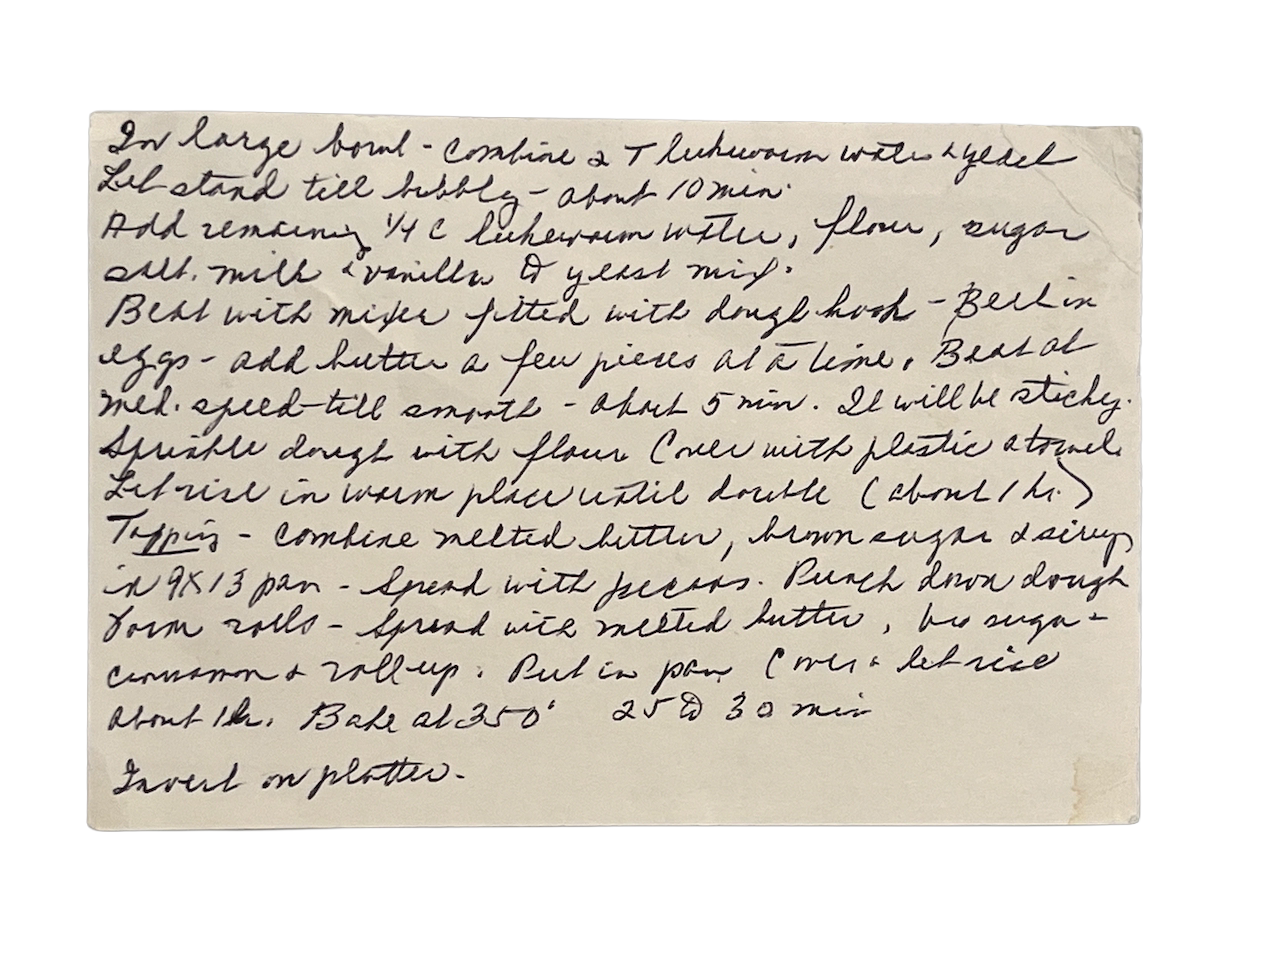 In large bowl - combine 2 T lukewarm water & yeast
Let stand till bubbly - about 10 min.
Add remaining 1/4 C lukewarm water, flour, sugar
salt, milk & vanilla to yeast mix.
Beat with mixer fitted with dough hook - Beat in
eggs - add butter a few pieces at a time. Beat at
med. speed till smooth - about 5 min. It will be sticky.
Sprinkle dough with flour Cover with plastic & towel.
Let rise in warm place until double (about 1 hr.)
Topping - combine melted butter, brown sugar & sirup
in 9X13 pan - Spread with pecans. Punch down dough
Form rolls - Spread with melted butter, br sugar
cinnamon & roll up. Put in pan Cover & let rise
about 1 hr. Bake at 350° 25 to 30 min
Invert on platter.